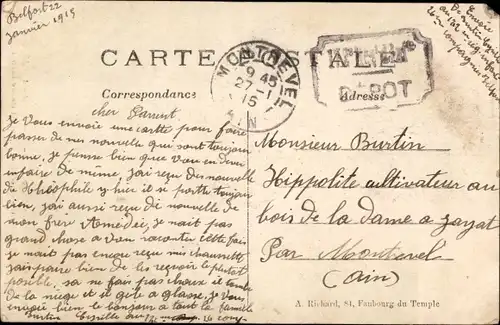 Belfort 22
Janvier 1915
CARTE POSTALE
MONTREVEL
9 45
27-1
15
AIN
DÉPOT
Envoie
Correspondance
Adresse
cher Parent
Je vous envoie une cartte pour faire
passer de mes nouvelle qui sont toujour
bonne, je pense bien que vous en dever
infaire de mime, j'ai reçu des nouvelle
di Théophile y hier il se porte toujour
bien, j'ai aussi reçu di nouvelle de
mon frère Amédée, je nait pas
grand chose a vou raconter cette fois
je nait pas encore reçu mi chaussette
faire bien de les reçevoir le plutot
posible, sa ne fait pas chaux il tombe
de la niege et il gèle a glasse, je vous
envoie bien le bonjour a tout la famille
Burtin
Monsieur Burtin
Hippolite cultivateur au
bois de la dame a Jayat
Par Montrevel
(Ain)
A. Richard, 84, Faubourg du Temple